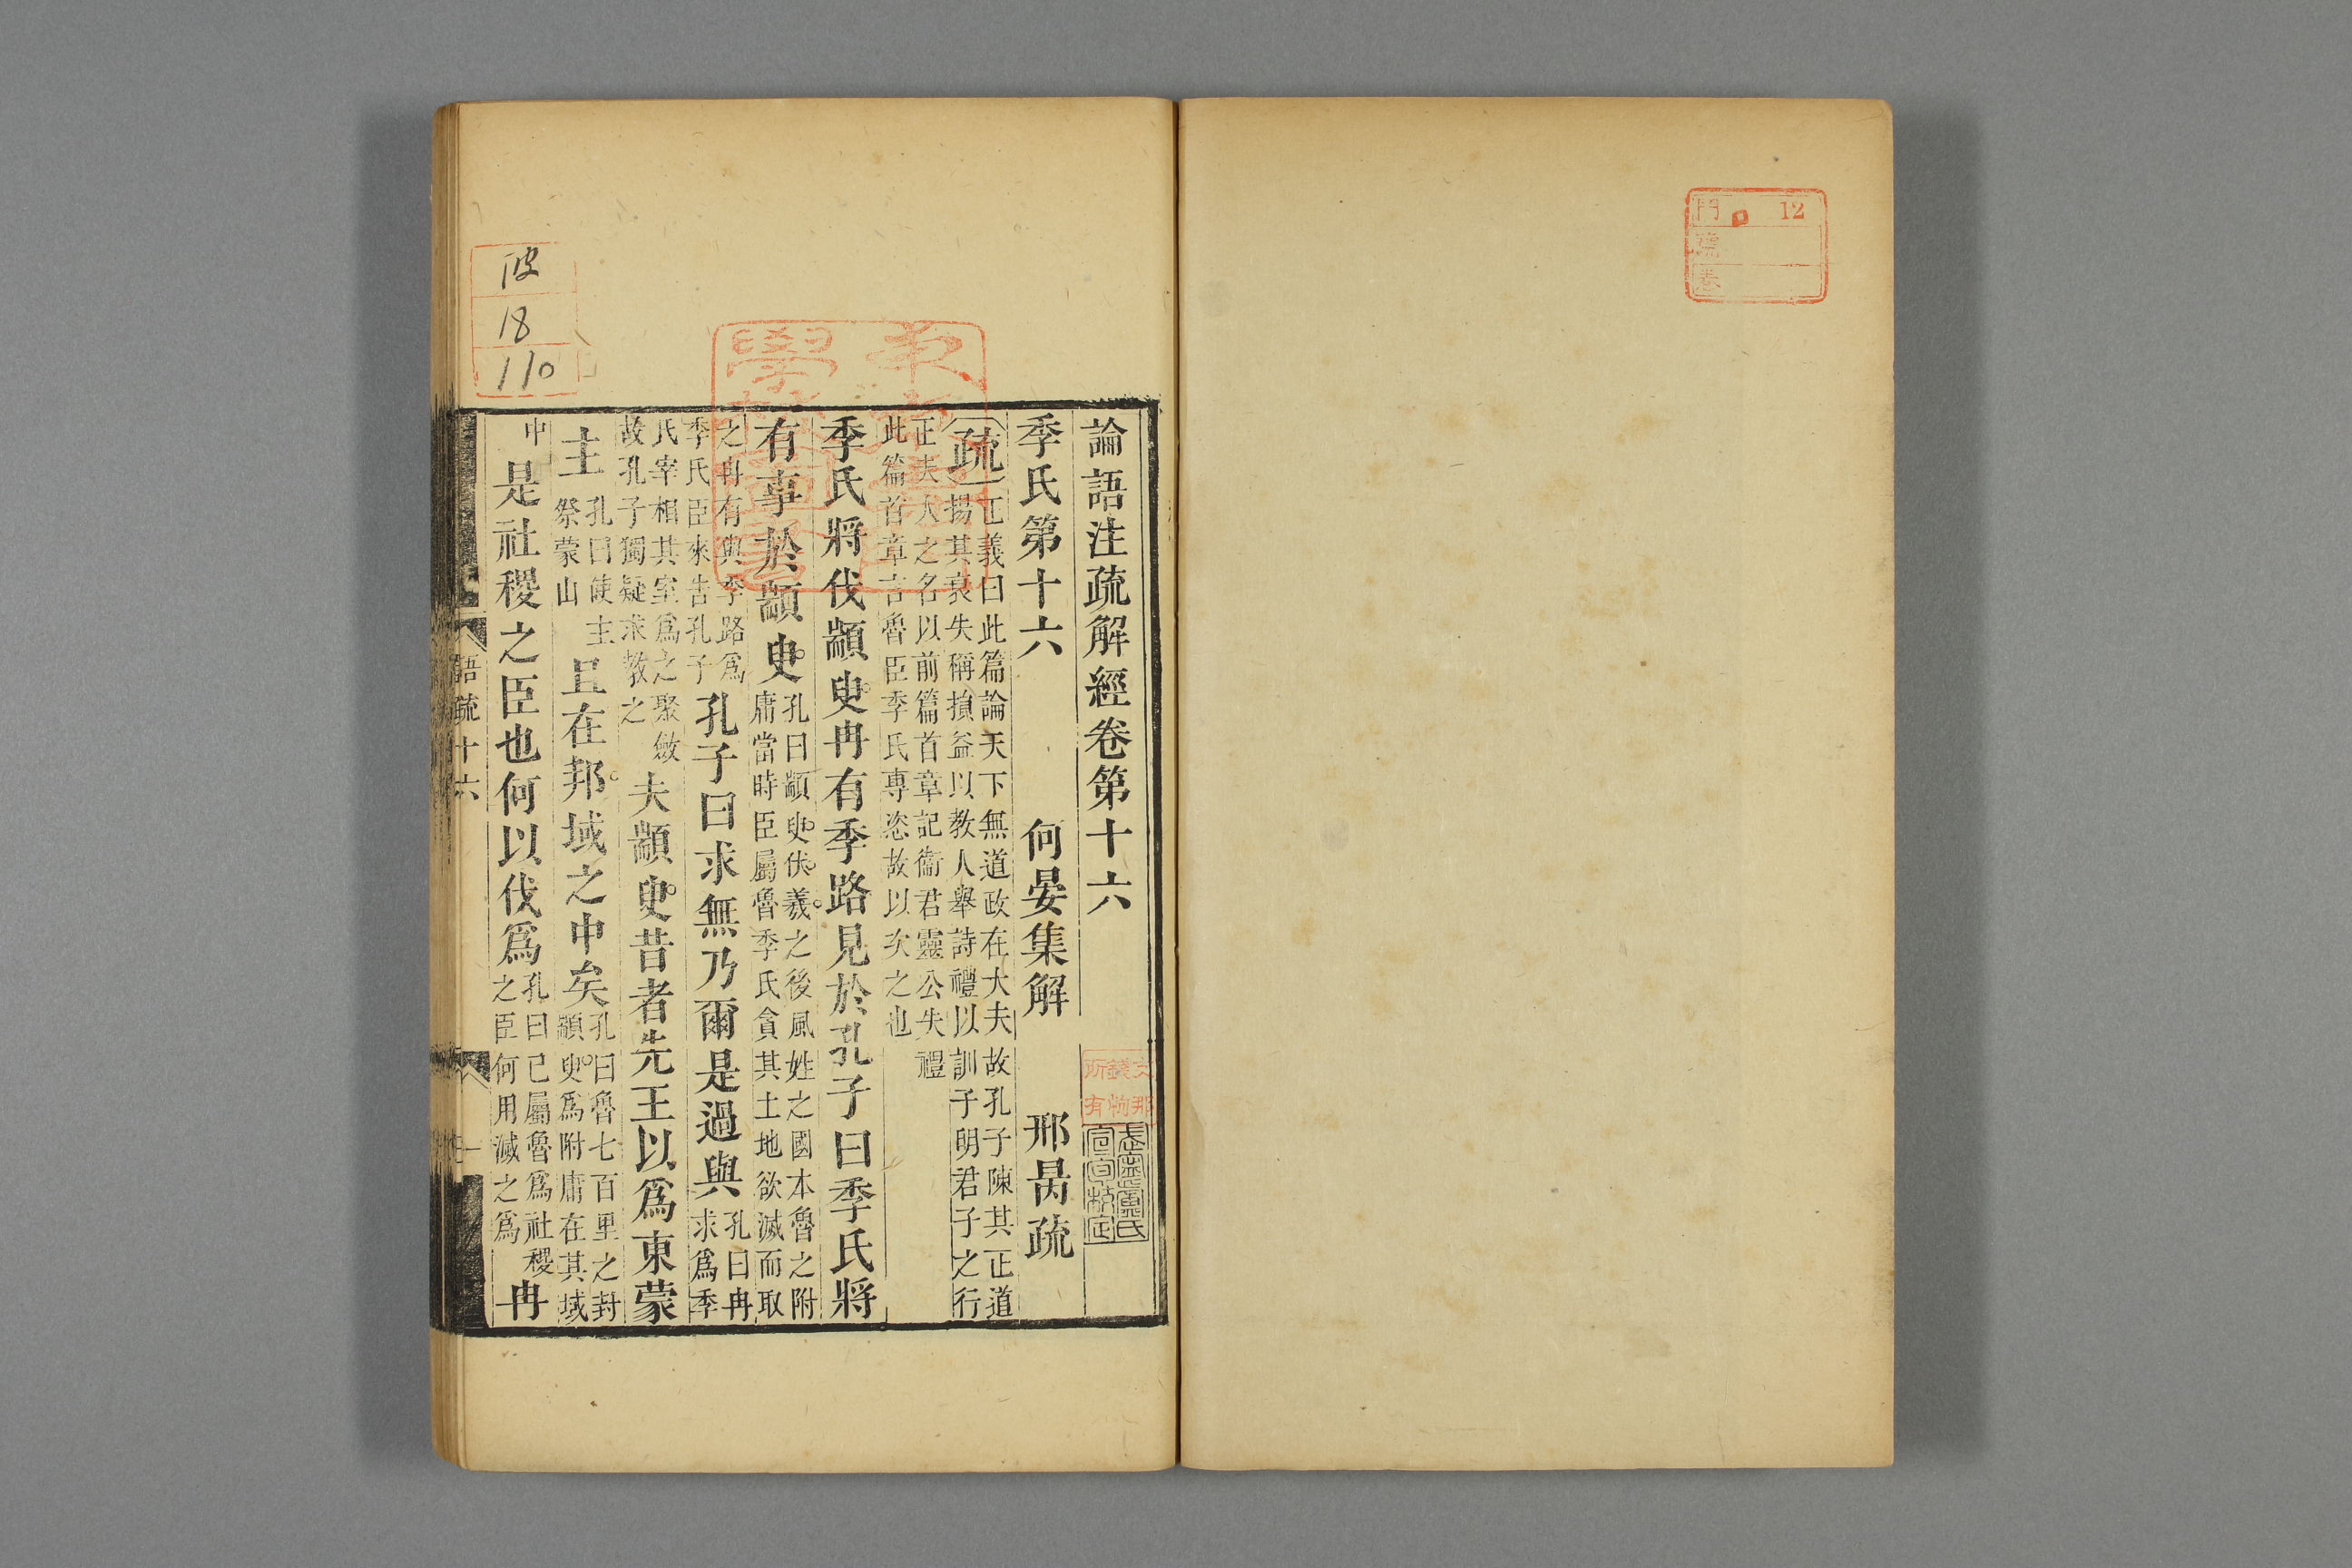 門 12
號
卷
論語注疏解經卷第十六
武寧盧氏
宣旬校定
季氏第十六 何晏集解 邢昺疏
疏
正義曰此篇論天下無道政在大夫故孔子陳其正道
揚其衰失稱損益以教人舉詩禮以訓子明君子之行
正夫人之名以前篇首章記衞君靈公失禮
此篇首章言魯臣季氏專恣故以次之也
季氏將伐顓臾冉有季路見於孔子曰季氏將
有事於顓臾
孔曰顓臾伏羲之後風姓之國本魯之附
庸當時臣屬魯季氏貪其土地欲滅而取
之冉有與季路爲
季氏臣來告孔子
孔子曰求無乃爾是過與
孔曰冉
求爲季
氏宰相其室爲之聚斂
故孔子獨疑求教之
夫顓臾昔者先王以爲東蒙
主
孔曰使主
祭蒙山
且在邦域之中矣
孔曰魯七百里之封
顓臾爲附庸在其域
中
是社稷之臣也何以伐爲
孔曰已屬魯爲社稷
之臣何用滅之爲
冉
語疏十六
一
18
110